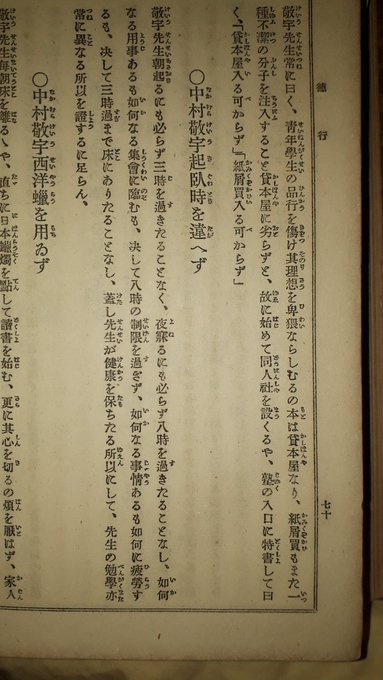 德行
七十
敬宇先生常に曰く、靑年學生の品行を傷け其理想を卑猥ならしむるの本は貸本屋なり、紙屑買もまた一
種不潔の分子を注入すること貸本屋に劣らずと、故に始めて同人社を設くるや、塾の入口に特書して曰
く、「貸本屋入る可からず」「紙屑買入る可からず」
〇中村敬宇起臥時を違へず
敬宇先生朝起るにも必らず三時を過ぎたることなく、夜寐るにも必らず八時を過ぎたることなし、如何
なる用事あるも如何なる集會に臨むも、決して八時の制限を過ぎず、如何なる事情あるも如何に疲勞す
るも、決して三時過まで床にありたることなし、蓋し先生が健康を保ちたる所以にして、先生の勉學亦
常に異なる所以を證するに足らん。
〇中村敬宇西洋蠟を用ゐず
敬宇先生每朝床を離るゝや、直ちに日本蠟燭を點して讀書を始む、更に其心を切るの煩を厭はず、家人